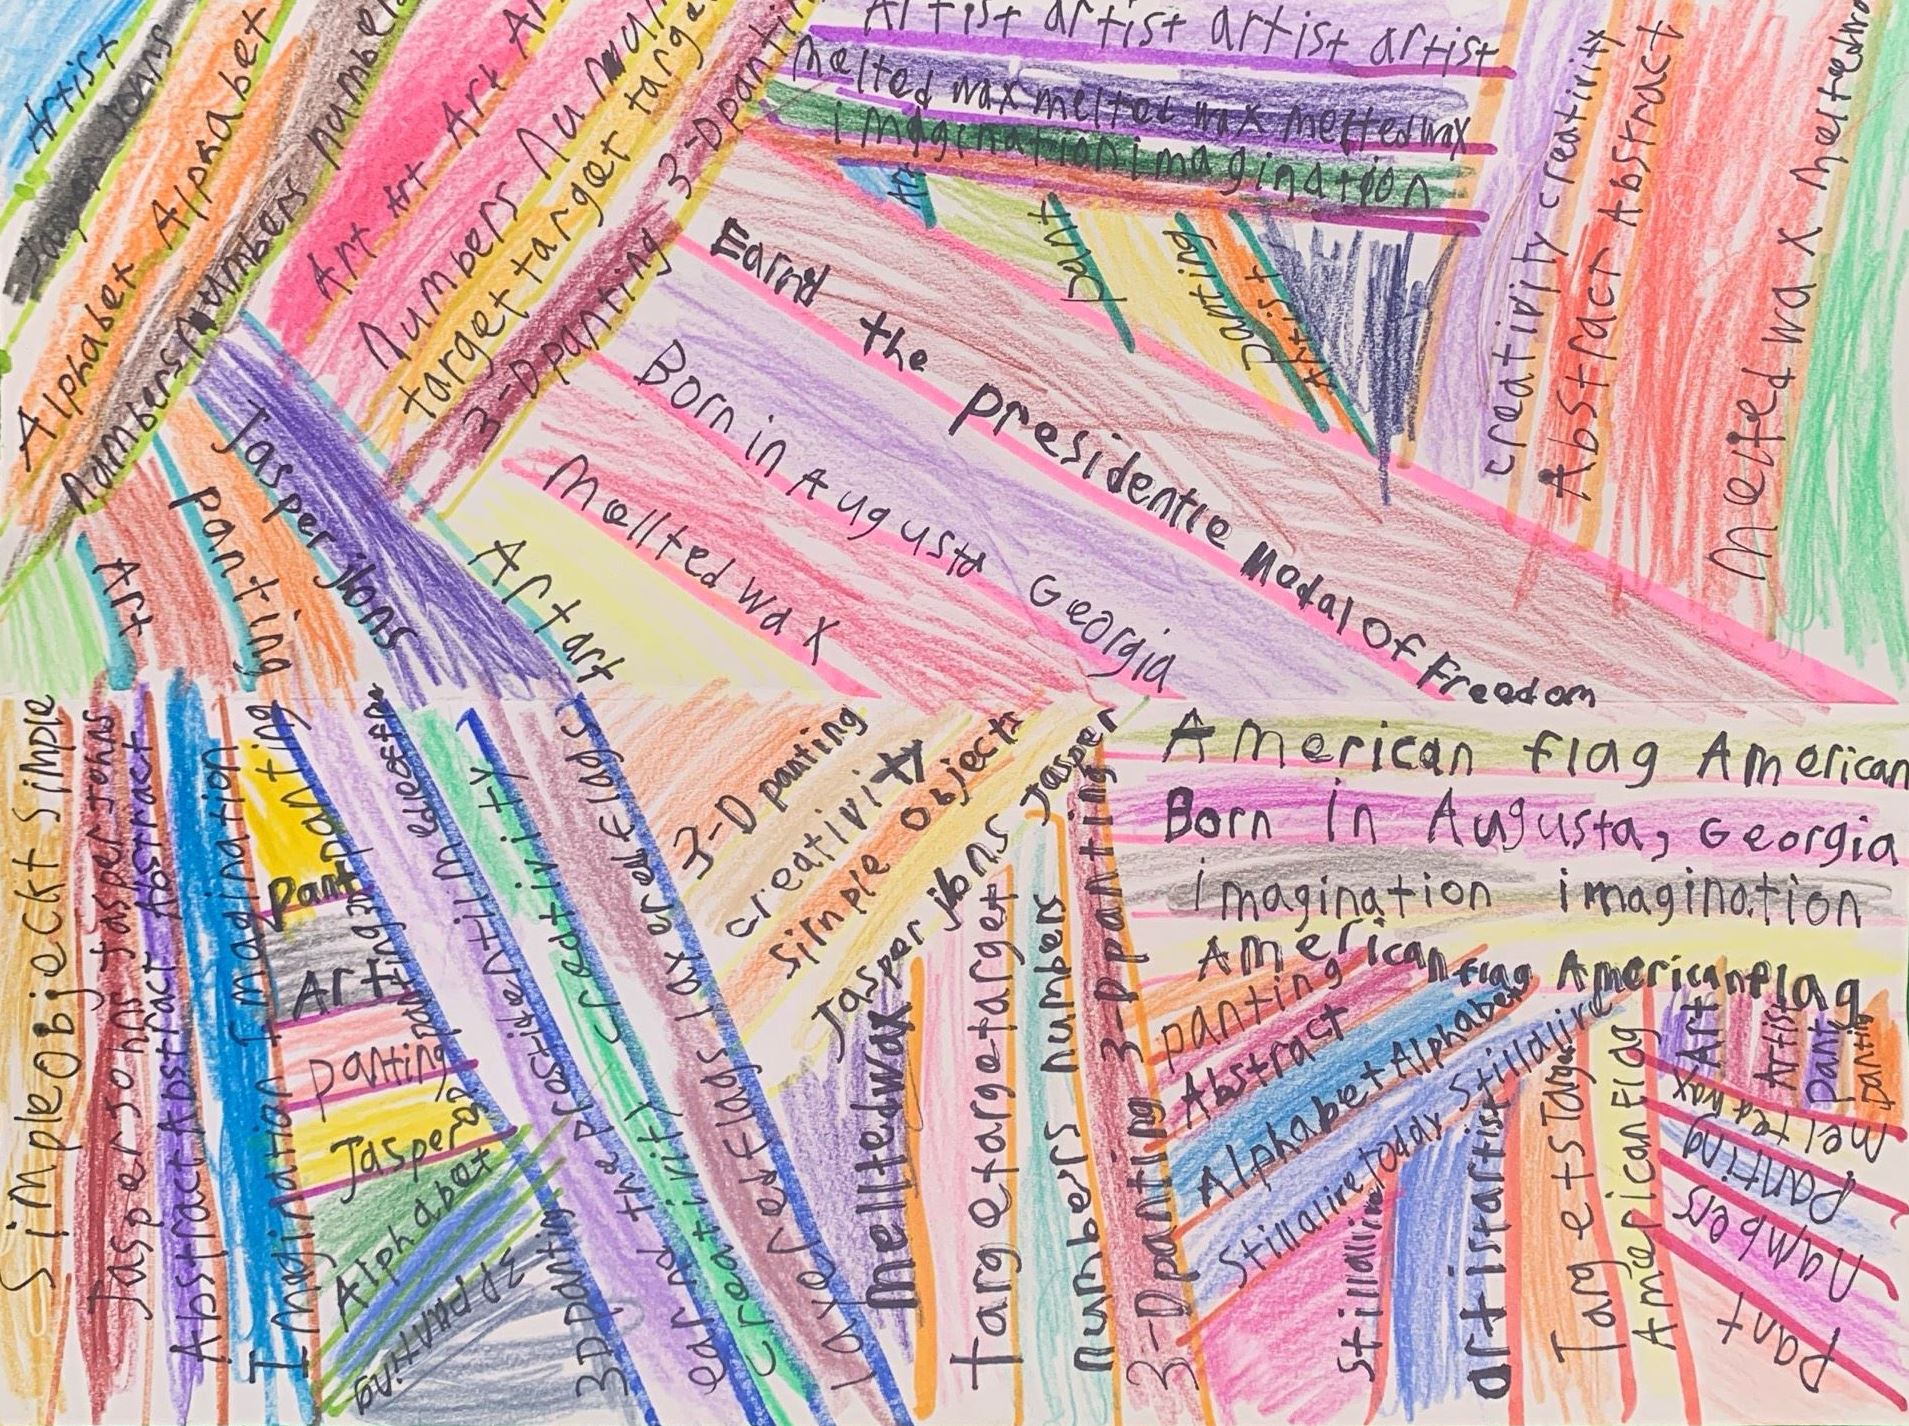 Artist
Alphabet Alphabet
numbers numbers numbers
Art Art Art Ar
numbers
target target targe
3-Dpanting 3-Dpantin
Artist artist artist artist
melted wax melted wax melted wax
imagination imagination
Art
pant
panting
Artist
creativity creativity
Abstract Abstract
melted wax melted
Earnd the presidentie Medal of Freedom
Born in Augusta Georgia
Mellted wax
Art art
Jasper jhons
panting
Art
Simpleobjeckt simple
Jasper Johns Jasper Johns
Abstract Abstract Abstract
Imagination Imagination
panting
pant
Art
panting
Jasper
Alphabet
3D panting
3D panting
creativity creativity
3-D panting
creativity
simple objects
Jasper jhons Jasper
melltedwax
target target target
numbers numbers
3-D panting 3-D panting
American flag American
Born in Augusta, Georgia
imagination imagination
American flag American flag
panting
Abstract
Alphabet Alphabet
artist artist
Targets Target
American Flag
Art
Artist
pant
panting
melted wax
panting
numbers
pant